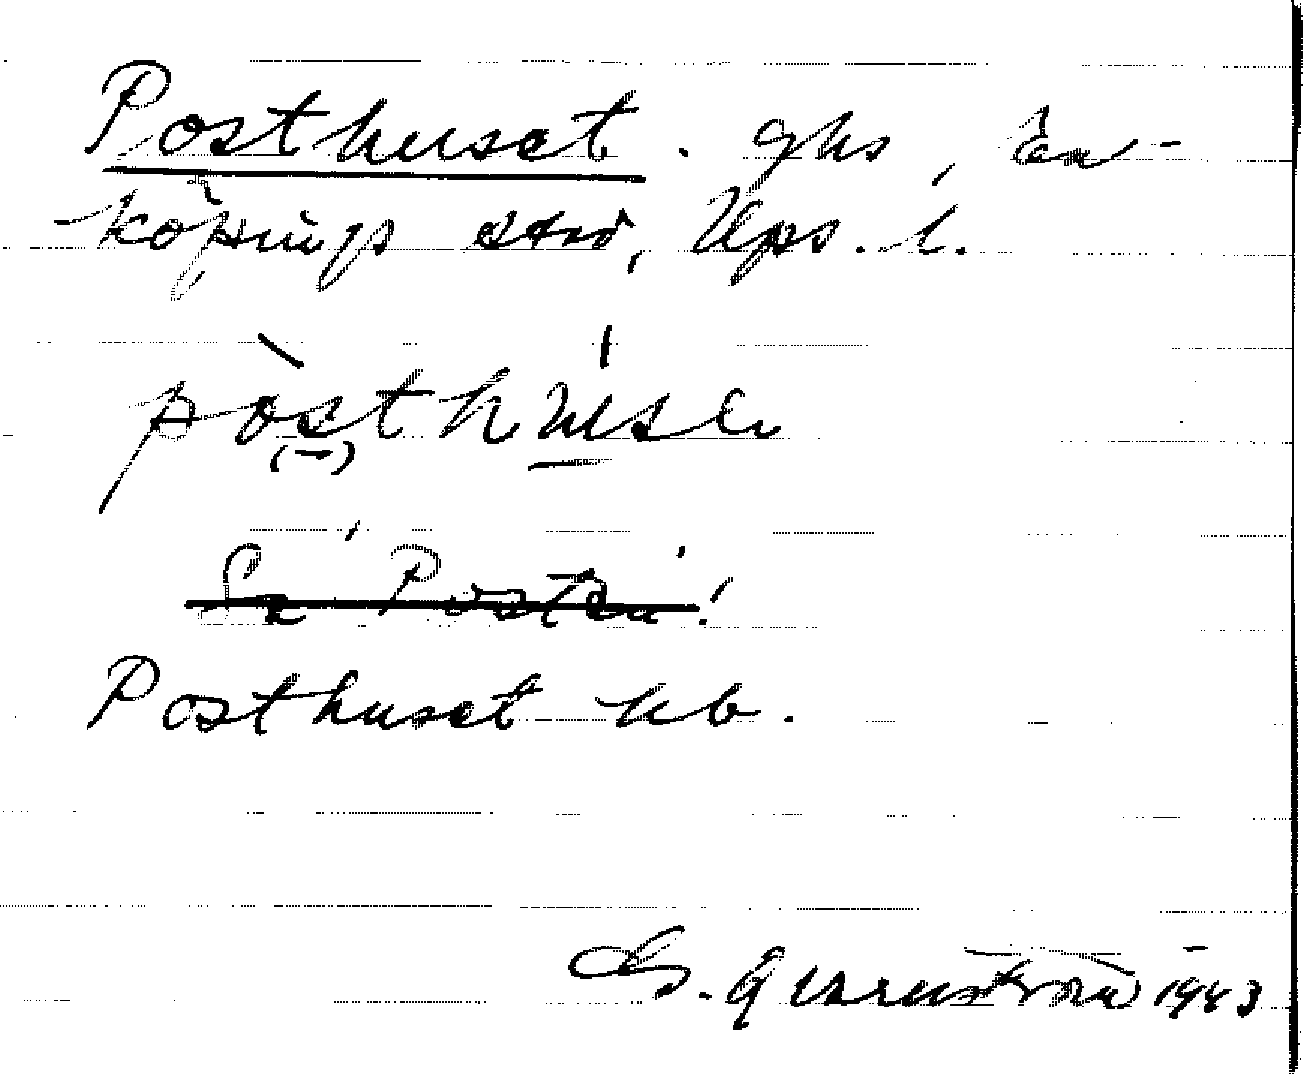 Posthuset. ghs, En-
köpings stad, Ups. l.
pòsthúsé
(-)
Se Posten!
Posthuset kb.
1943